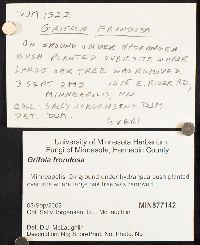 DJM 1322
GRIFOLA FRONDOSA
ON GROUND UNDER HYDRANGEA
BUSH PLANTED OVER SITE WHERE
LARGE OAK TREE WAS REMOVED.
3 SEPT 2002 E. RIVER RD,
MINNEAPOLIS, MN
COLL: SALLY JORGENSEN, DJM
DET. DJM.
(OVER)
University of Minnesota Herbarium
Fungi of Minnesota, Hennepin County
Grifola frondosa
Minneapolis. On ground under hydrangea bush planted
over site where large oak tree was removed.
03/Sep/2002
MIN877142
Col. Sally Jorgensen, D.J. McLaughlin
Det. D.J. McLaughlin
Description: No; SporePrint: No; Photo: No